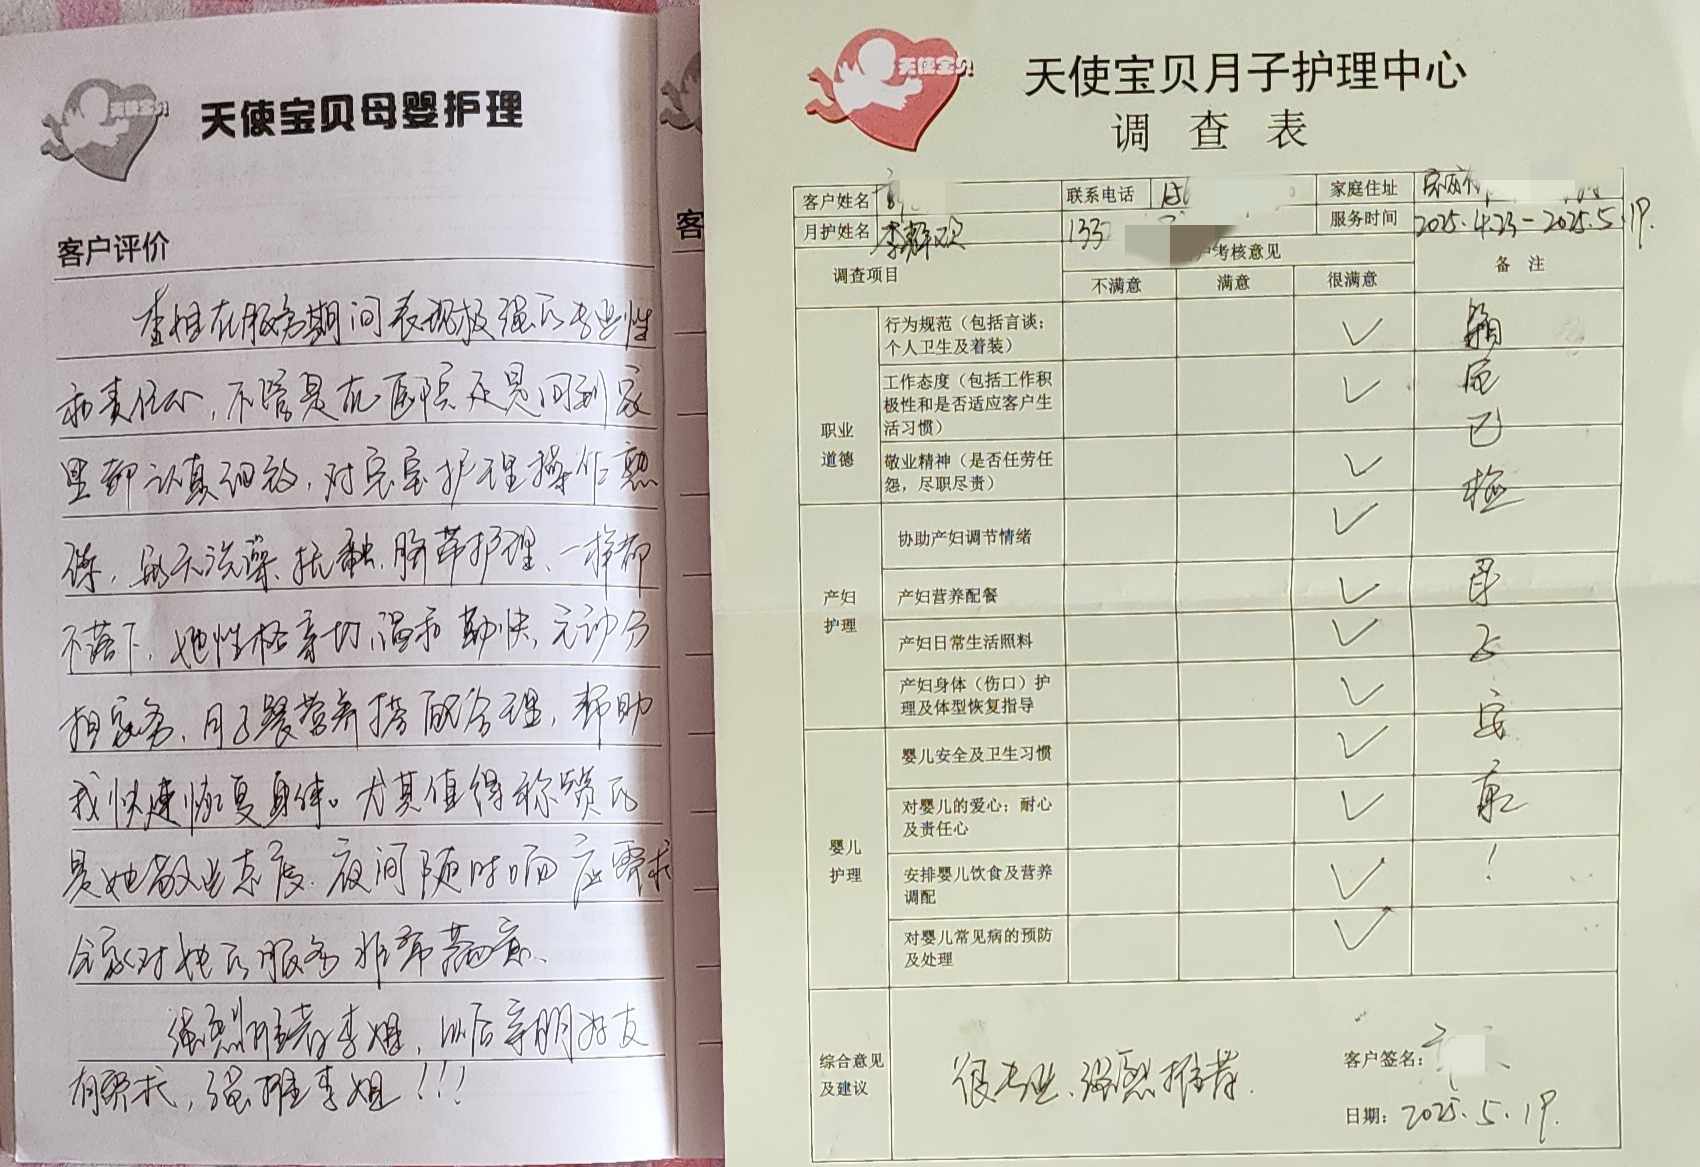 天使宝贝
天使宝贝母婴护理
客户评价
李姐在服务期间表现极强的专业性
和责任心,不管是在医院还是回到家
里都认真细致,对宝宝护理操作熟
练,每天洗澡、抚触、脐带护理、一样都
不落下,她性格亲切,温和勤快,主动分
担家务,月子餐营养搭配合理,帮助
我快速恢复身体。尤其值得称赞的
是她敬业态度,夜间随时响应需求
全家对她的服务非常满意、
强烈推荐李姐,以后亲朋好友
有需求,强推李姐!!!
客
天使宝贝
天使宝贝月子护理中心
调查表
客户姓名
联系电话
家庭住址
月护姓名
133
服务时间 2025.4.23-2025.5.19.
调查项目
户考核意见
备 注
不满意
满意
很满意
职业
道德
行为规范(包括言谈;
个人卫生及着装)
工作态度(包括工作积
极性和是否适应客户生
活习惯)
敬业精神(是否任劳任
怨,尽职尽责)
产妇
护理
协助产妇调节情绪
产妇营养配餐
产妇日常生活照料
产妇身体(伤口)护
理及体型恢复指导
婴儿
护理
婴儿安全及卫生习惯
对婴儿的爱心;耐心
及责任心
安排婴儿饮食及营养
调配
对婴儿常见病的预防
及处理
!
综合意见
及建议
很专业、强烈推荐.
客户签名:
日期: 2025.5.19.